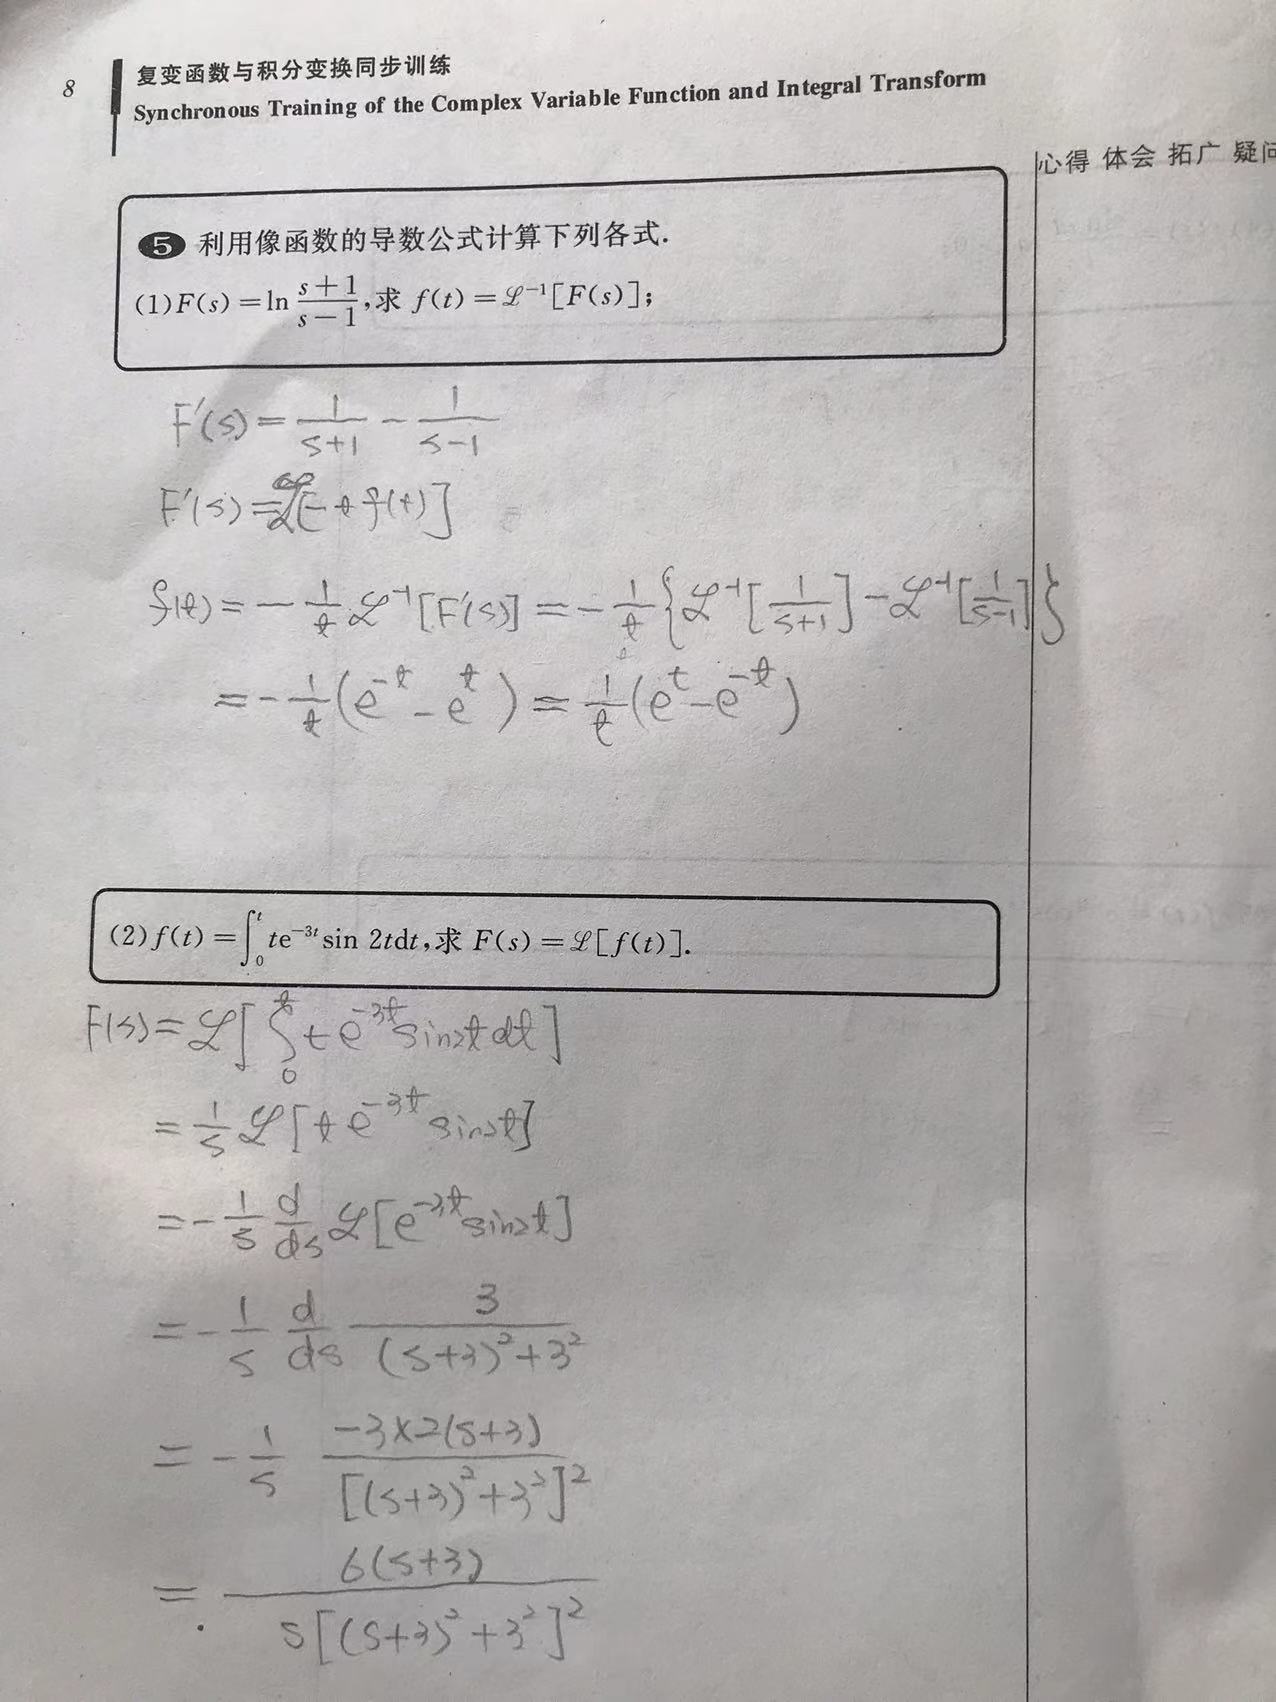 8
复变函数与积分变换同步训练
Synchronous Training of the Complex Variable Function and Integral Transform
心得 体会 拓广 疑问
5 利用像函数的导数公式计算下列各式.
(1)F(s)=ln (s+1)/(s-1),求 f(t)=ℒ⁻¹[F(s)];
F'(s)=1/(s+1) - 1/(s-1)
F'(s)=ℒ[-tf(t)]
f(t)=-1/t ℒ⁻¹[F'(s)]=-1/t{ℒ⁻¹[1/(s+1)]-ℒ⁻¹[1/(s-1)]}
=-1/t(e^-t-e^t)=1/t(e^t-e^-t)
(2)f(t)=∫₀ᵗte⁻³ᵗsin 2tdt,求 F(s)=ℒ[f(t)].
F(s)=ℒ[∫₀ᵗte⁻³ᵗsin2tdt]
=1/s ℒ[te⁻³ᵗsin2t]
=-1/s d/ds ℒ[e⁻³ᵗsin2t]
=-1/s d/ds 3/((s+3)²+3²)
=-1/s (-3×2(s+3))/[(s+3)²+3²]²
=6(s+3)/(s[(s+3)²+3²]²)